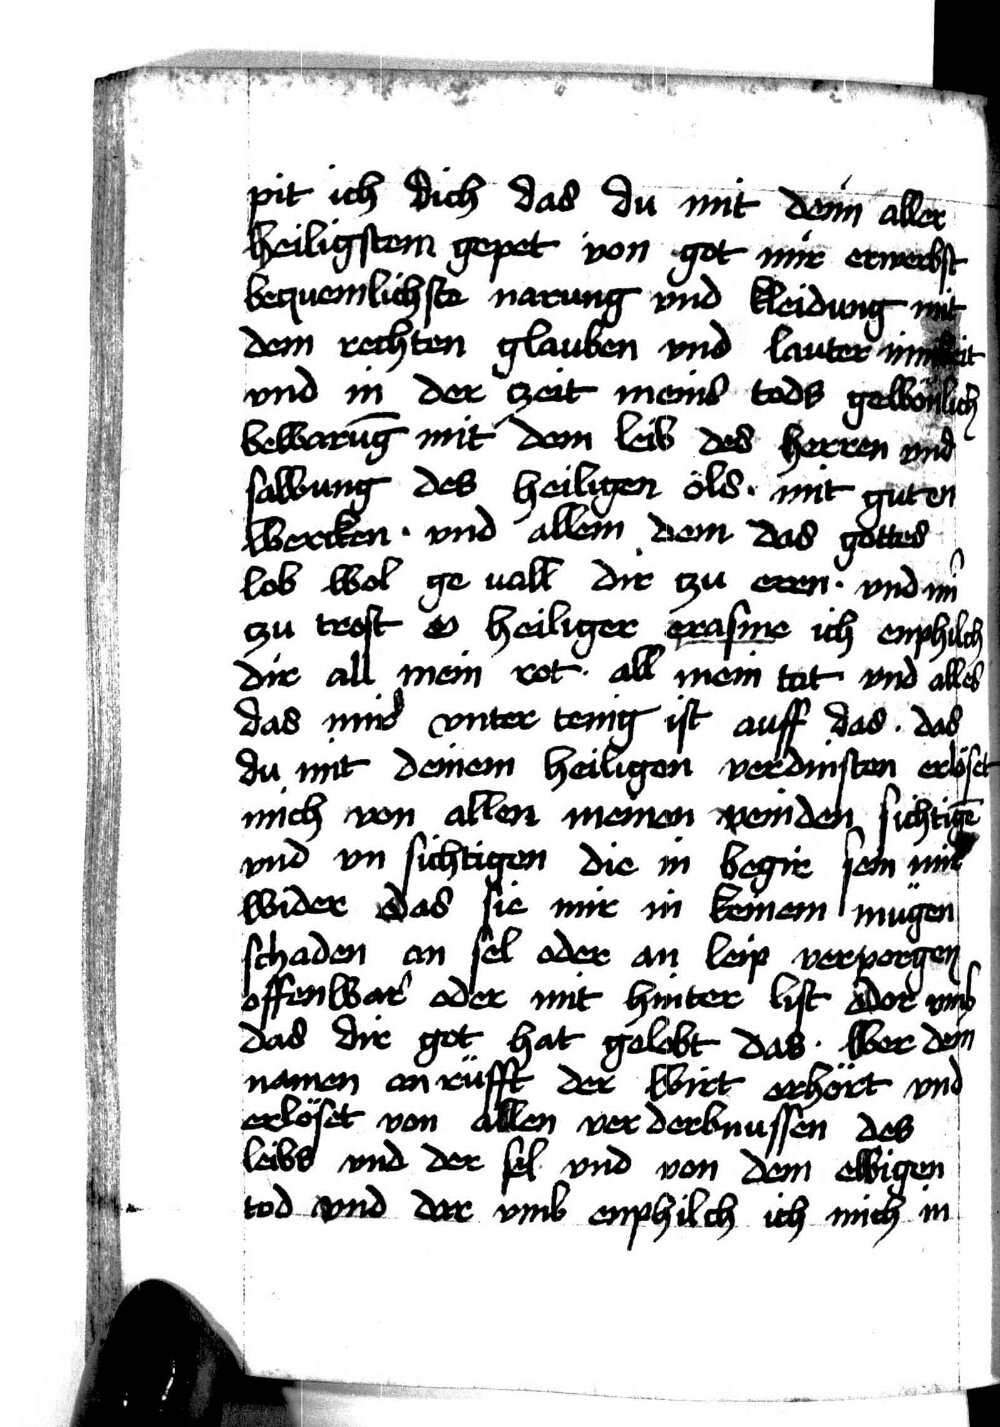 pit ich dich das du mit deim aller
heiligstem gepet von got mir erwerbst
bequemlichste narung vnd kleidung mit
dem rechten glauben vnd lauter innikeit
vnd in der czeit meins tods gewönlich
bewarūg mit dem leib des herren vnd
salbung des heiligen öls · mit guten
wercken · vnd allem dem das gottes
lob wol ge uall dir czu eren · vnd mir
czu trost o heiliger erasme ich enphilch
dir all mein rot · all mein tat vnd alles
das mir vnter tenig ist auff das · das
du mit deinem heiligen verdinsten erlöset
mich von allen meinen veinden sichtigē
vnd vn sichtigen die in begir sein mir
wider das sie mir in keinem mügen
schaden an sel oder an leip verporgen
offenwar oder mit hinter list oder vmb
das dir got hat gelobt das · wer dein
namen an rüfft der wirt erhört vnd
erlöset von allen verderbnussen des
leibs vnd der sel vnd von dem ewigen
tod vnd dar vmb enphilch ich mich in